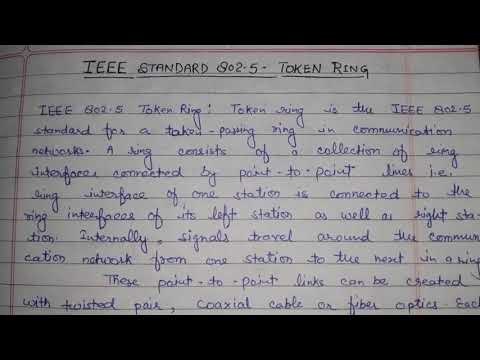 IEEE STANDARD 802.5 - TOKEN RING
IEEE 802.5 Token Ring: Token ring is the IEEE 802.5
standard for a token-passing ring in communication
networks. A ring consists of a collection of ring
interfaces connected by point-to-point lines i.e.
ring interface of one station is connected to the
ring interfaces of its left station as well as right sta-
tion. Internally, signals travel around the communi-
cation network from one station to the next in a ring
These point-to-point links can be created
with twisted pair, coaxial cable or fiber optics. Each